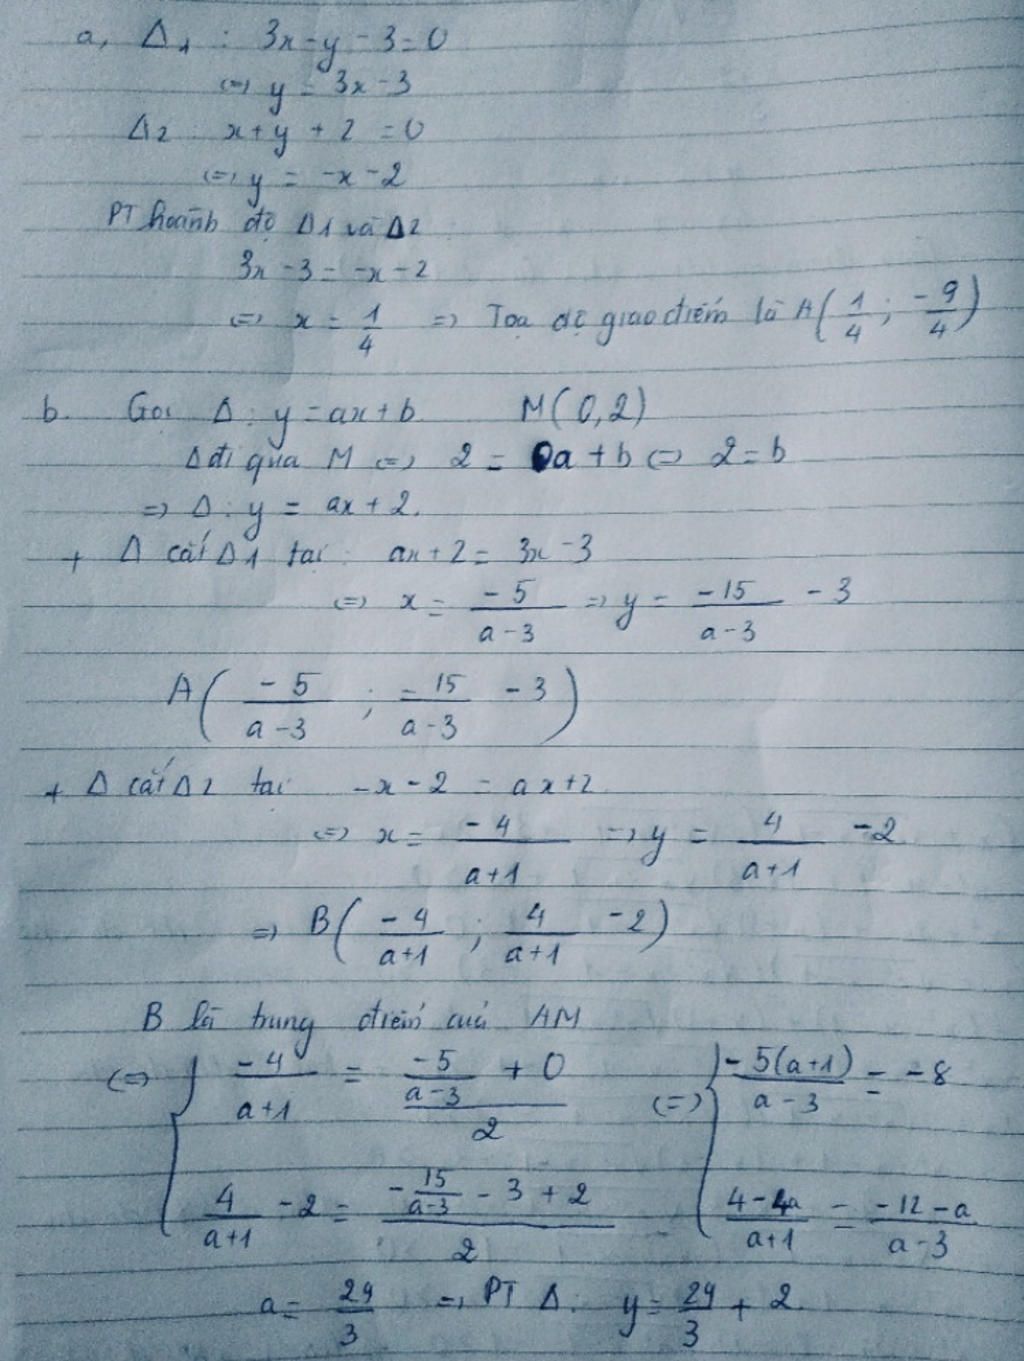 a, Δ1 : 3x - y - 3 = 0
<=> y = 3x - 3
Δ2 : x + y + 2 = 0
<=> y = -x - 2
PT hoành độ Δ1 và Δ2
3x - 3 = -x - 2
<=> x = 1/4 => Toạ độ giao điểm là A(1/4 ; -9/4)
b. Gọi Δ : y = ax + b. M(0,2)
Δ đi qua M <=> 2 = 0a + b <=> 2 = b
=> Δ : y = ax + 2.
+ Δ cắt Δ1 tại : ax + 2 = 3x - 3
<=> x = -5/(a-3) => y = -15/(a-3) - 3
A(-5/(a-3) ; -15/(a-3) - 3)
+ Δ cắt Δ2 tại -x - 2 = ax + 2
<=> x = -4/(a+1) => y = 4/(a+1) - 2
=> B(-4/(a+1) ; 4/(a+1) - 2)
B là trung điểm của AM
<=> { -4/(a+1) = (-5/(a-3) + 0)/2 <=> { -5(a+1)/(a-3) = -8
4/(a+1) - 2 = (-15/(a-3) - 3 + 2)/2 (4-4a)/(a+1) = (-12-a)/(a-3)
a = 29/3 => PT Δ : y = 29/3 + 2